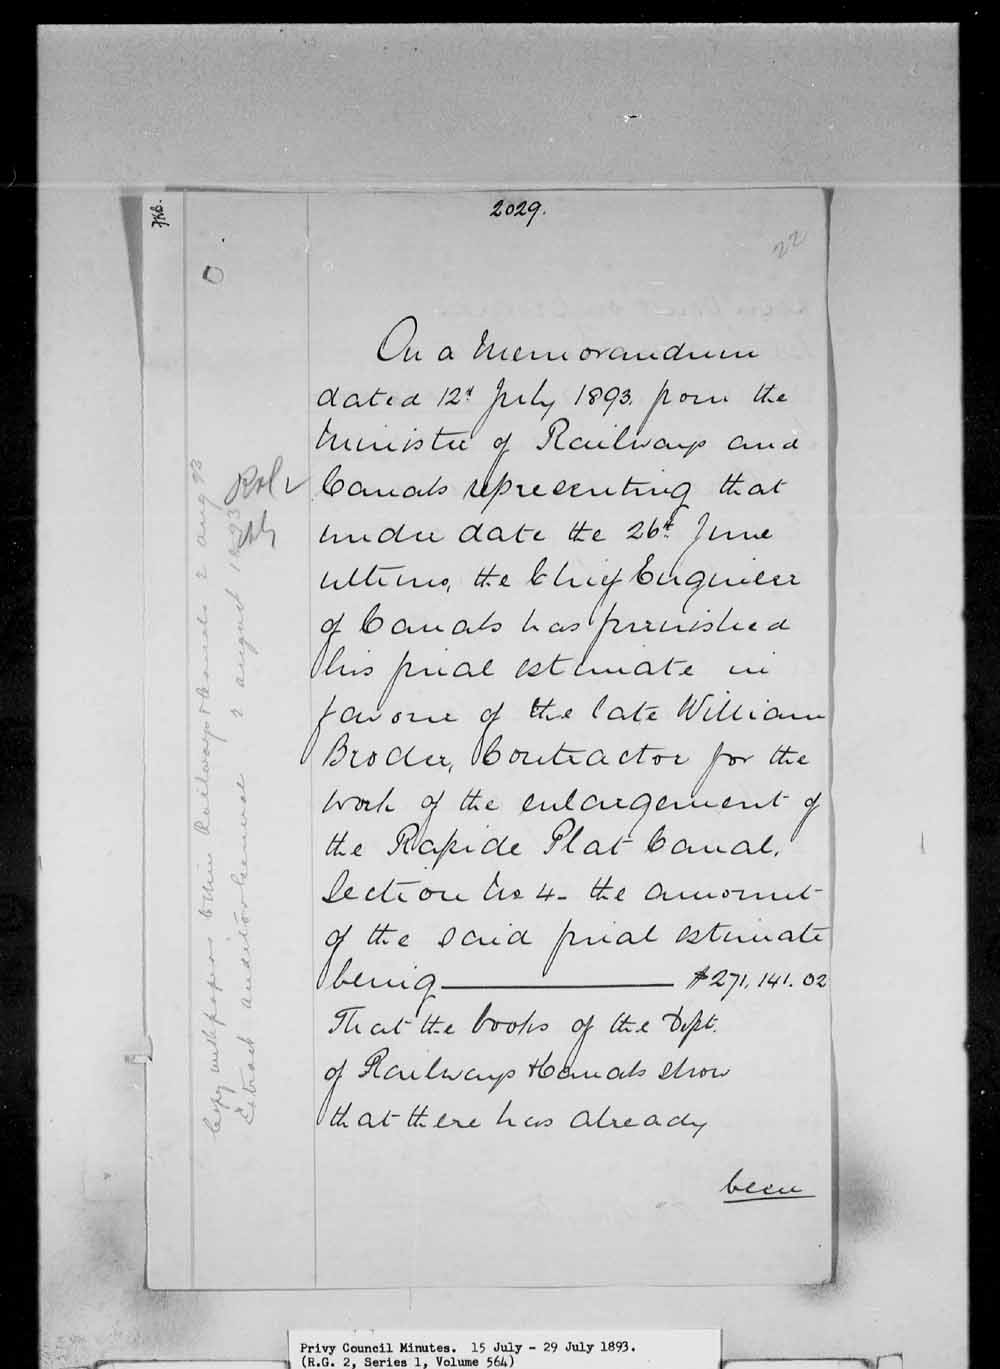 2029.
22
On a Memorandum
dated 12th July 1893. from the
Minister of Railways and
Canals representing that
under date the 26th June
ultimo, the Chief Engineer
of Canals has furnished
his final estimate in
favour of the late William
Broder, Contractor for the
work of the enlargement of
the Rapide Plat Canal,
Section No 4 - the amount
of the said final estimate
being $271,141.02
That the books of the Dept.
of Railways & Canals show
that there has already
been
Copy with papers Min Railways & Canals 2 Aug 93
Extract Auditor General 2 August 1893
Privy Council Minutes. 15 July - 29 July 1893.
(R.G. 2, Series 1, Volume 564)